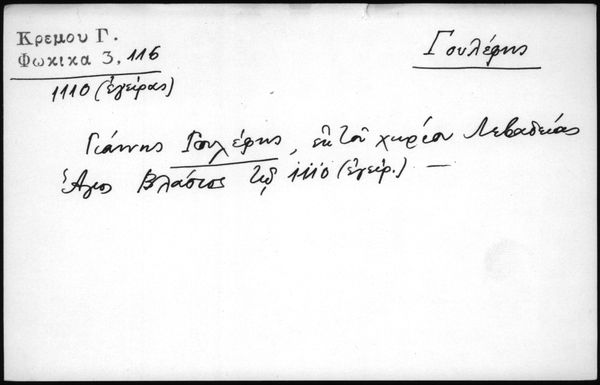 Κρεμου Γ.
Φωκικα 3, 116
1110 (ἐγείρας)
Γουλέφης
Γιάννης Γουλέφης, ἐκ τοῦ χωρίου Λεβαδείας
Ἁγιος Βλάσιος τῷ 1110 (ἐγείρ.) —